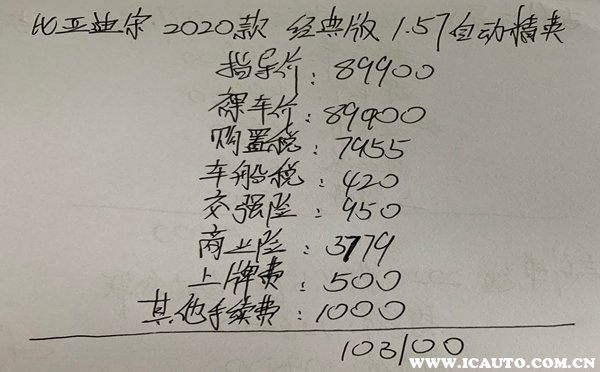 比亚迪宋 2020款 经典版 1.5T自动精英
指导价：89900
裸车价：89900
购置税：7955
车船税：420
交强险：950
商业险：3779
上牌费：500
其他手续费：1000
103100
WWW.ICAUTO.COM.CN